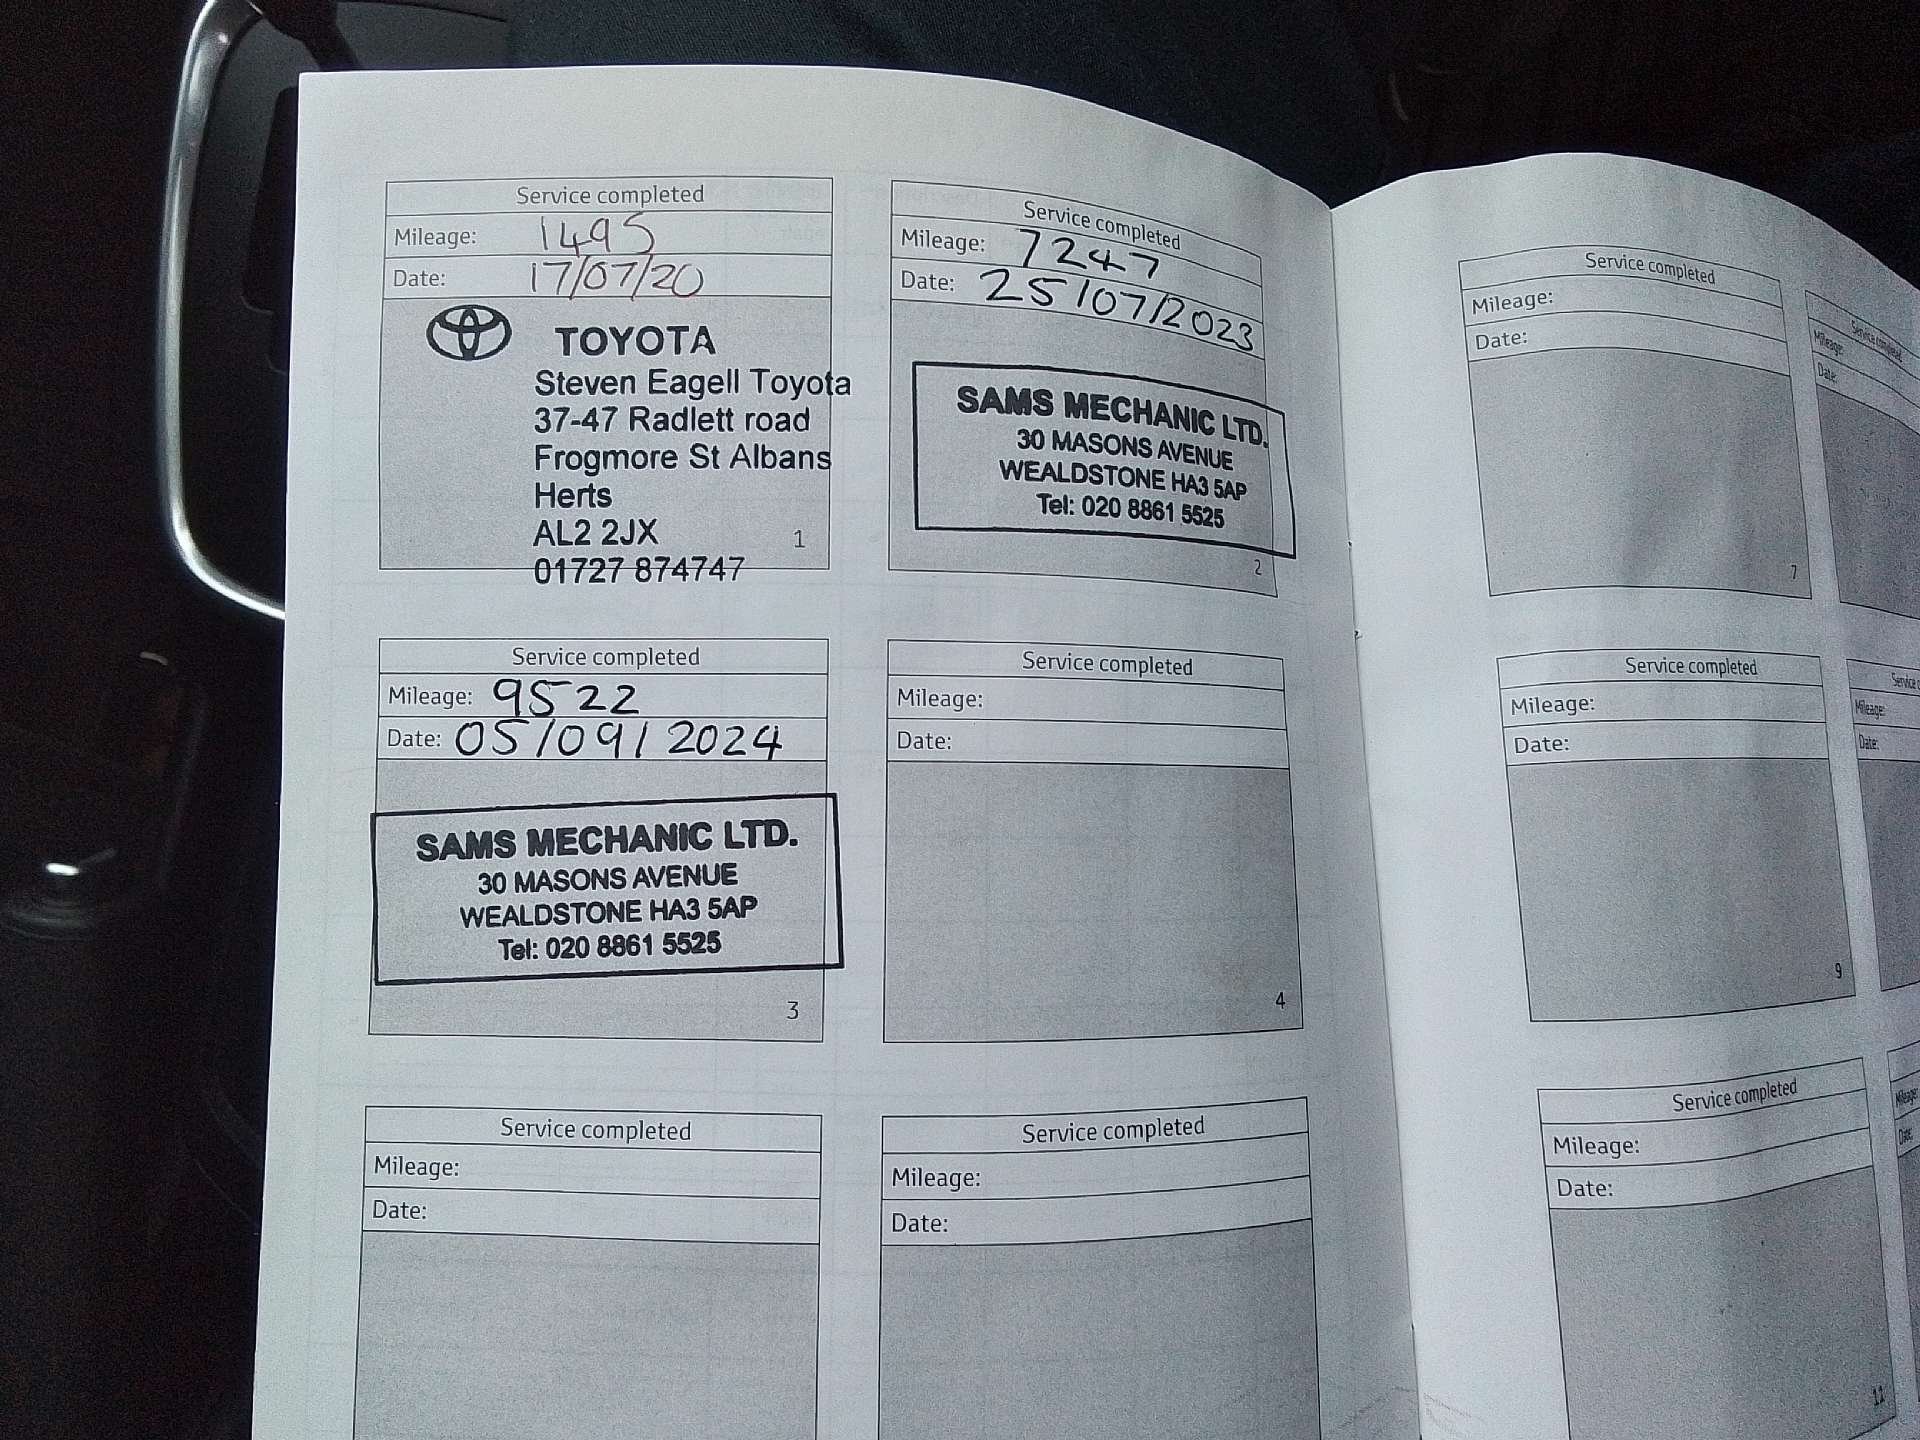 Service completed
Mileage: 1495
Date: 17/07/20
TOYOTA
Steven Eagell Toyota
37-47 Radlett road
Frogmore St Albans
Herts
AL2 2JX
01727 874747
1
Service completed
Mileage: 7247
Date: 25/07/2023
SAMS MECHANIC LTD.
30 MASONS AVENUE
WEALDSTONE HA3 5AP
Tel: 020 8861 5525
2
Service completed
Mileage: 9522
Date: 05/09/2024
SAMS MECHANIC LTD.
30 MASONS AVENUE
WEALDSTONE HA3 5AP
Tel: 020 8861 5525
3
Service completed
Mileage:
Date:
4
Service completed
Mileage:
Date:
Service completed
Mileage:
Date:
Service completed
Mileage:
Date:
7
Service completed
Mileage:
Date:
Service completed
Mileage:
Date:
9
Service
Mileage:
Date:
Service completed
Mileage:
Date:
Mileage:
Date: